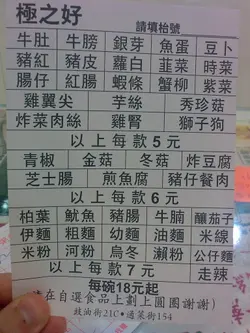 極之好 請填枱號
牛肚 牛膀 銀芽 魚蛋 豆卜
豬紅 豬皮 蘿白 韮菜 時菜
腸仔 紅腸 蝦條 蟹柳 紫菜
雞翼尖 芋絲 秀珍菇
炸菜肉絲 雞腎 獅子狗
以上每款5元
青椒 金菇 冬菇 炸豆腐
芝士腸 煎魚腐 豬仔餐肉
以上每款6元
柏葉 魷魚 豬腸 牛腩 釀茄子
伊麵 粗麵 幼麵 油麵 米線
米粉 河粉 烏冬 瀨粉 公仔麵
以上每款7元 走辣
每碗18元起
請在自選食品上劃上圓圈謝謝)
豉油街21C·通菜街154